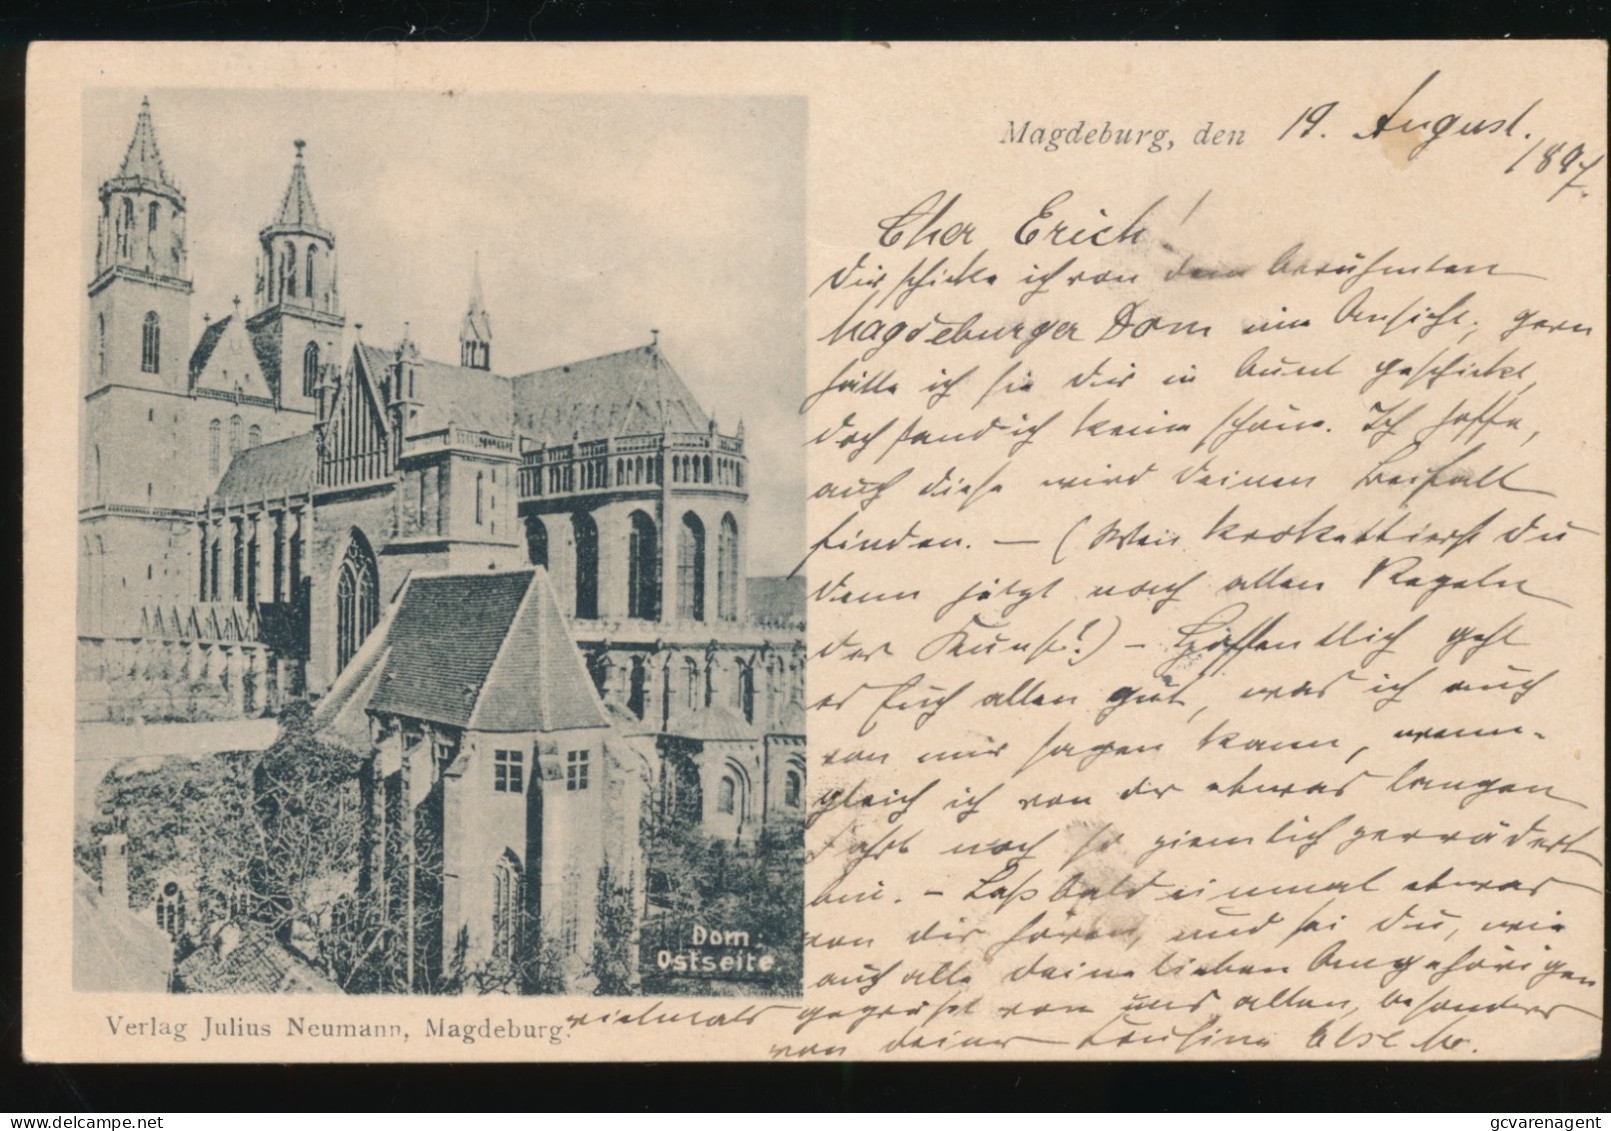 Magdeburg, den 19. August.
1897.
Cher Erich!
Dir schicke ich von dem berühmten
Magdeburger Dom eine Ansicht; gern
hätte ich sie Dir in bunt geschickt,
doch fand ich keine schöne. Ich hoffe,
auch diese wird Deinen Beifall
finden. — (Wen krokettierst Du
denn jetzt nach allen Regeln
der Kunst?) – Hoffentlich geht
es Euch allen gut, was ich auch
von mir sagen kann, wenn-
gleich ich von der etwas langen
Fahrt noch so ziemlich gerädert
bin. – Laß bald einmal etwas
von dir hören, und sei Du, wie
auch alle Deine lieben Angehörigen
vielmals gegrüßt von uns allen, besonders
von Deiner Kousine Else M.
Dom:
Ostseite.
Verlag Julius Neumann, Magdeburg.
Uploaded on Delcampe.net
gcvarenagent